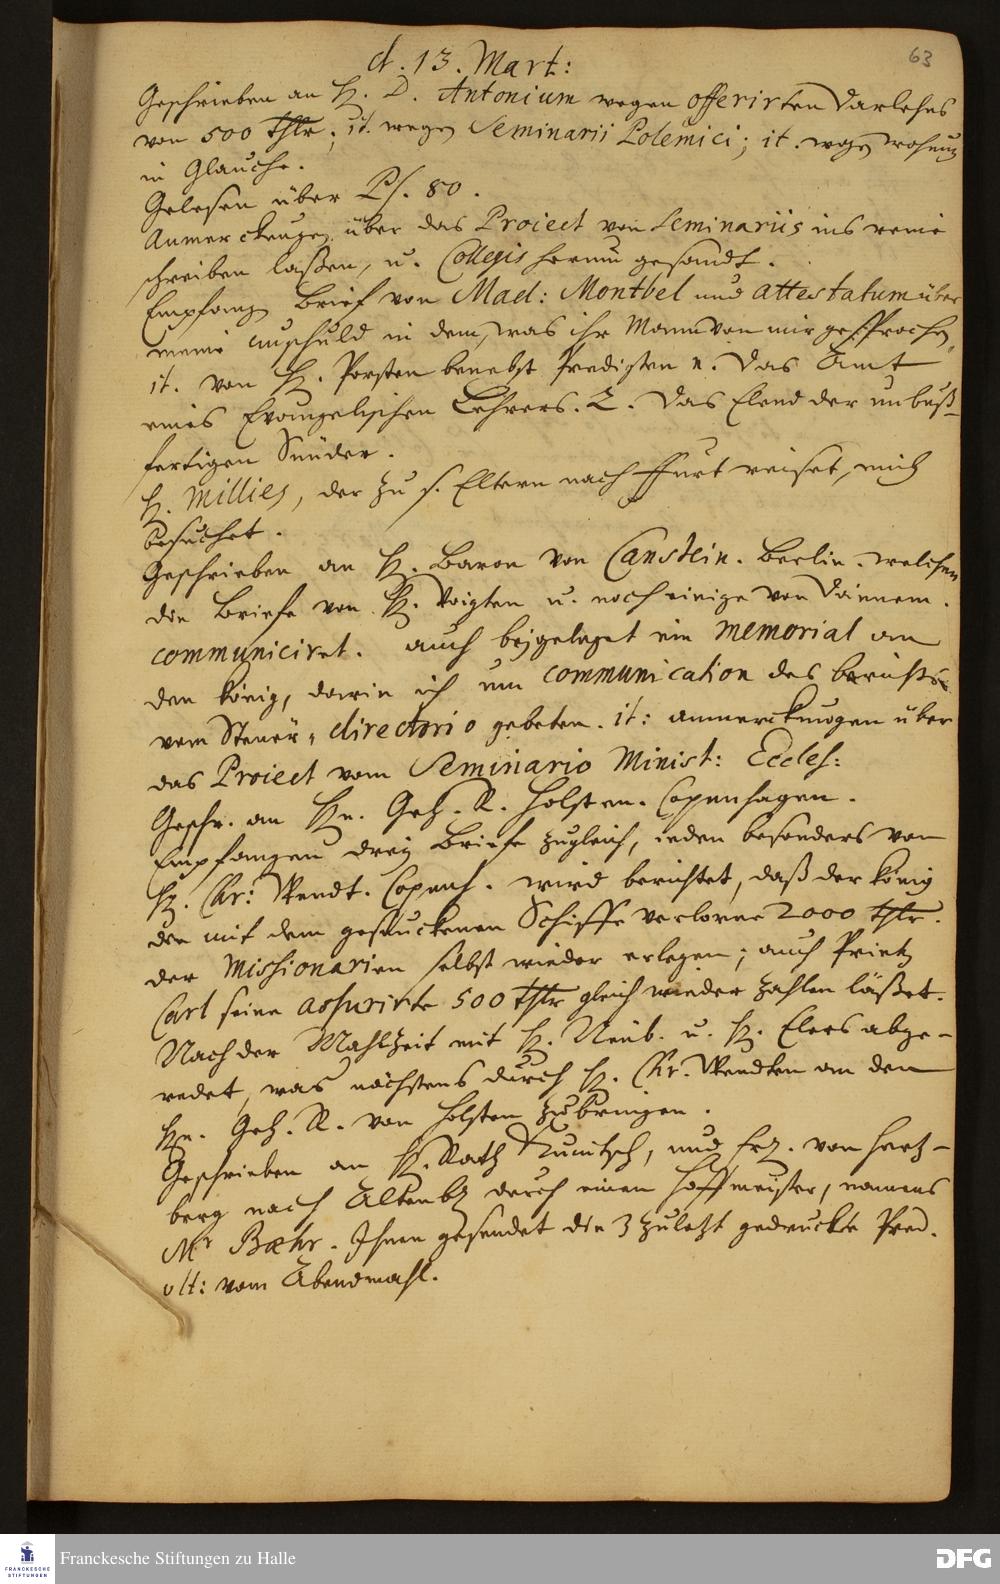 63
d. 13. Mart:
Geschrieben an H. D. Antonium wegen offerirten Darlehns
von 500 Thlr; it. wegen Seminarii Polemici; it. wegen wohnung
in Glaucha.
Gelesen über Ps. 80.
Anmerckungen über das Project von Seminariis ins reine
schreiben laßen, u. Collegis herum gesandt.
Empfangen Brief von Mad: Montbel und attestatum über
meine unschuld in dem, was ihr Mann von mir gesprochen,
it. von H. Porsten benebst Predigten 1. Das Amt
eines Evangelischen Lehrers. 2. Das Elend der unbuß-
fertigen Sünder.
H. Millies, der zu s. Eltern nach Ffurt reiset, mich
besuchet.
Geschrieben an H. Baron von Canstein. Berlin. welchem
die Briefe von H. Voigten u. noch einige von Wienern
communiciret. auch beygeleget ein Memorial an
den König, darin ich um communication des berichts
vom Steuer-directorio gebeten. it: anmerckungen über
das Project vom Seminario Minist: Eccles:
Geschr. an Hn. Geh. R. Holsten. Copenhagen.
Empfangen drey Briefe zugleich, ieden besonders von
H. Chr: Wendt. Copenh. wird berichtet, daß der König
die mit dem gesunckenen Schiffe verlorne 2000 Thlr.
der Missionarien selbst wieder erlegen; auch Printz
Carl seine assurirte 500 Thlr gleich wieder zahlen läßet.
Nach der Mahlzeit mit H. Neub. u. H. Elers abge-
redet, was nächstens durch H. Chr. Wendten an den
Hn. Geh. R. von Holsten zu bringen.
Geschrieben an H. Rath und Frl. von Hertz-
berg nach Altenbg durch einen Hoffmeister, namens
Mr Bæhr. Ihnen gesendet die 3 zuletzt gedruckte Pred.
ult: vom Abendmahl.
FRANCKESCHE STIFTUNGEN
Franckesche Stiftungen zu Halle
DFG